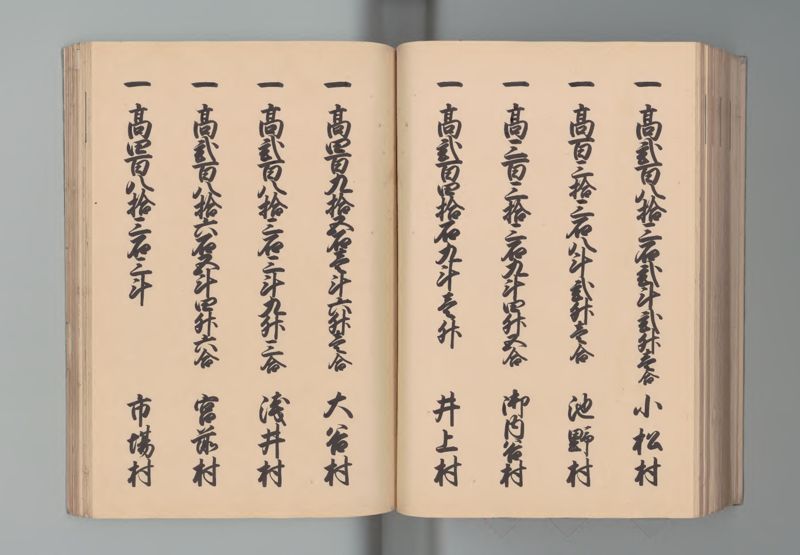 一 高弐百八拾三石弐斗弐升壱合 小松村
一 高百三拾三石八斗弐升壱合 池野村
一 高三百三拾三石九斗四升五合 御内谷村
一 高弐百四拾石九斗壱升 井上村
一 高四百九拾五石壱斗六升壱合 大谷村
一 高弐百八拾三石三斗九升三合 浅井村
一 高弐百八拾六石五斗四升六合 宮前村
一 高四百八拾三石三斗 市場村